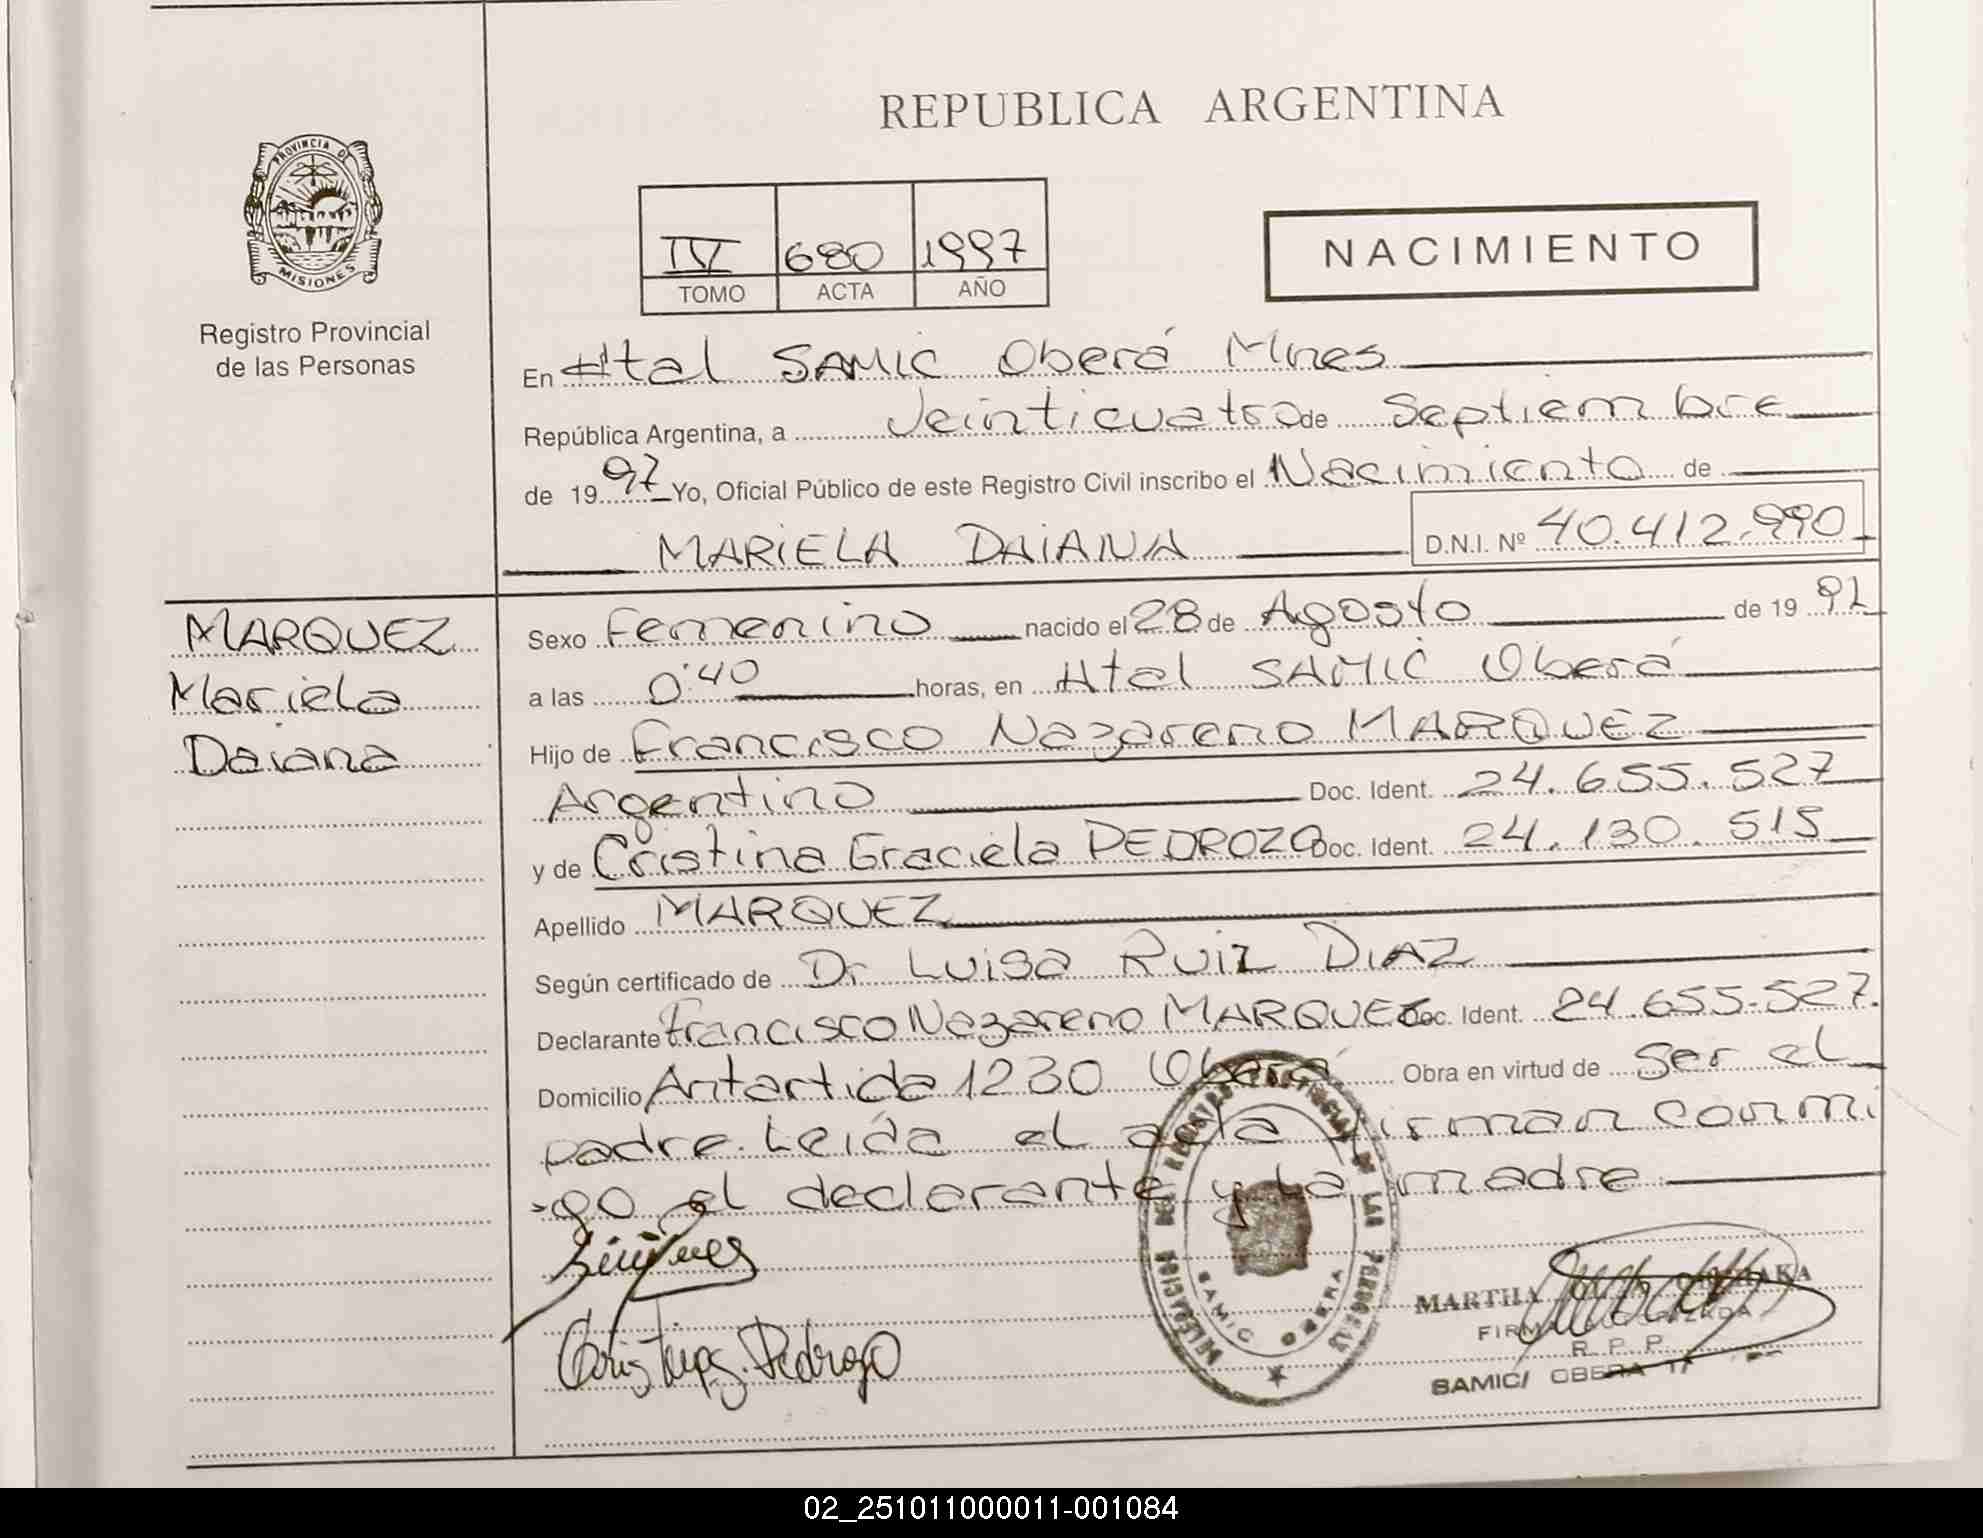 REPUBLICA ARGENTINA
PROVINCIA DE
MISIONES
Registro Provincial
de las Personas
IV 680 1997
TOMO ACTA AÑO
NACIMIENTO
En Htal SAMIC Oberá Mnes
República Argentina, a Veinticuatro de Septiembre
de 1997 Yo, Oficial Público de este Registro Civil inscribo el Nacimiento de
MARIELA DAIANA D.N.I. Nº 40.412.990
MARQUEZ
Mariela
Daiana
Sexo Femenino nacido el 28 de Agosto de 1997
a las 0:40 horas, en Htal SAMIC Oberá
Hijo de Francisco Nazareno MARQUEZ
Argentino Doc. Ident. 24.655.527
y de Cristina Graciela PEDROZO Doc. Ident. 24.130.515
Apellido MARQUEZ
Según certificado de Dr Luisa Ruiz DIAZ
Declarante Francisco Nazareno MARQUEZ Doc. Ident. 24.655.527.
Domicilio Antartida 1230 Oberá Obra en virtud de Ser el
padre. Leída el acta firman conmi
-go el declarante y la madre
Cristina Pedrozo
DELEGACION DEL REGISTRO PROVINCIAL DE LAS PERSONAS
SAMIC OBERA
MARTHA
FIRMA AUTORIZADA
R. P. P.
SAMIC/ OBERA
02_251011000011-001084